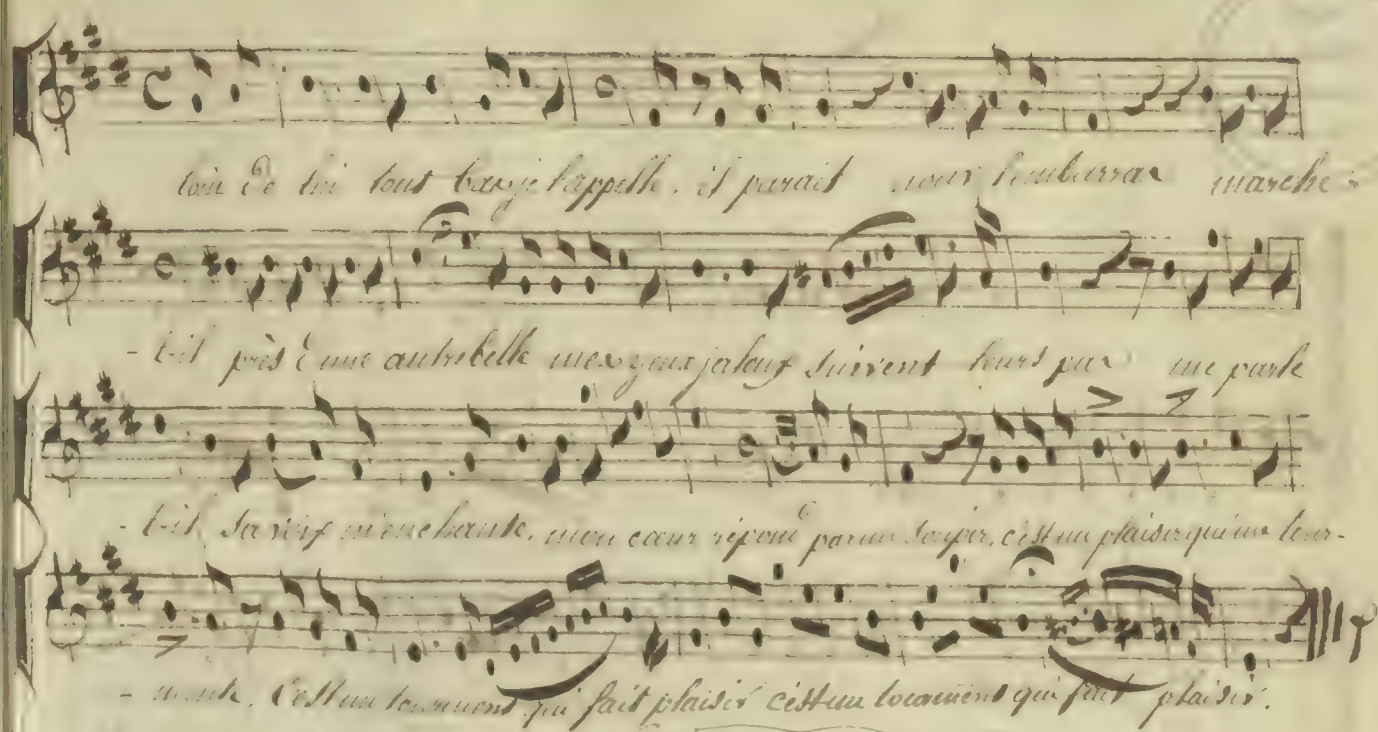 loin de lui tout bas je l'appelle, il parait nouv l'embarras marche-
-t-il près d'une autre belle mes yeux jaloux suivent leurs pas me parle
-t-il, sa voix m'enchante, mon cœur répond par un soupir, c'est un plaisir qui me tour-
-mente, C'est un tourment qui fait plaisir c'est un tourment qui fait plaisir.